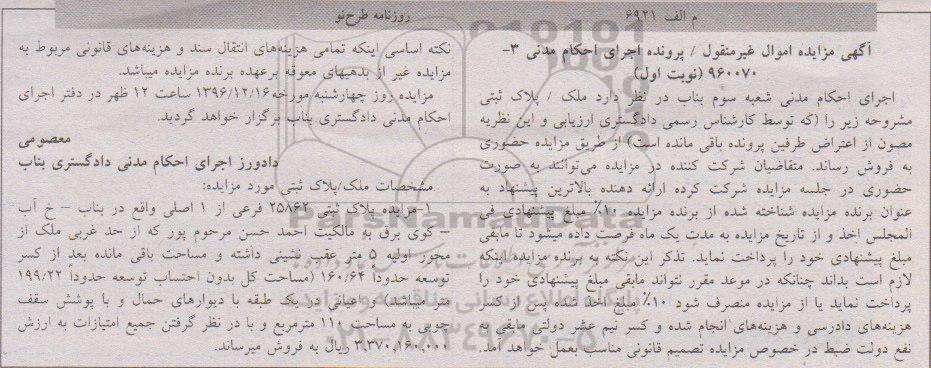 م الف ۶۹۲۱
روزنامه طرح‌نو
آگهی مزایده اموال غیرمنقول / پرونده اجرای احکام مدنی ۳-
۹۶۰۰۷۰ (نوبت اول)
اجرای احکام مدنی شعبه سوم بناب در نظر دارد ملک / پلاک ثبتی
مشروحه زیر را (که توسط کارشناس رسمی دادگستری ارزیابی و این نظریه
مصون از اعتراض طرفین پرونده باقی مانده است) از طریق مزایده حضوری
به فروش رساند. متقاضیان شرکت کننده در مزایده می‌توانند به صورت
حضوری در جلسه مزایده شرکت کرده ارائه دهنده بالاترین پیشنهاد به
عنوان برنده مزایده شناخته شده از برنده مزایده ۱۰٪ مبلغ پیشنهادی فی
المجلس اخذ و از تاریخ مزایده به مدت یک ماه فرصت داده میشود تا مابقی
مبلغ پیشنهادی خود را پرداخت نماید. تذکر این نکته به برنده مزایده اینکه
لازم است بداند چنانکه در موعد مقرر نتواند مابقی مبلغ پیشنهادی خود را
پرداخت نماید یا از مزایده منصرف شود ۱۰٪ مبلغ اخذ شده پس از کسر
هزینه‌های دادرسی و هزینه‌های انجام شده و کسر نیم عشر دولتی مابقی به
نفع دولت ضبط در خصوص مزایده تصمیم قانونی مناسب بعمل خواهد آمد.
نکته اساسی اینکه تمامی هزینه‌های انتقال سند و هزینه‌های قانونی مربوط به
مزایده غیر از بدهیهای معوقه برعهده برنده مزایده میباشد.
مزایده روز چهارشنبه مورخه ۱۳۹۶/۱۲/۱۶ ساعت ۱۲ ظهر در دفتر اجرای
احکام مدنی دادگستری بناب برگزار خواهد گردید.
معصومی
دادورز اجرای احکام مدنی دادگستری بناب
مشخصات ملک/پلاک ثبتی مورد مزایده:
۱-مزایده پلاک ثبتی ۲۵۸۶۲ فرعی از ۱ اصلی واقع در بناب – خ آب
– کوی برق به مالکیت احمد حسن مرحوم پور که از حد غربی ملک از
محور اولیه ۵ متر عقب نشینی داشته و مساحت باقی مانده بعد از کسر
توسعه حدوداً ۱۶۰/۶۴ (مساحت کل بدون احتساب توسعه حدوداً ۱۹۹/۲۲
متر میباشد) و اعیانی در یک طبقه با دیوارهای حمال و با پوشش سقف
چوبی به مساحت ۱۱۰ مترمربع و با در نظر گرفتن جمیع امتیازات به ارزش
۳,۳۷۰,۱۶۰,۰۰۰ ریال به فروش میرساند.
ParsNamadData
۰۲۱-۸۸۳۴۹۶۷۰-۵